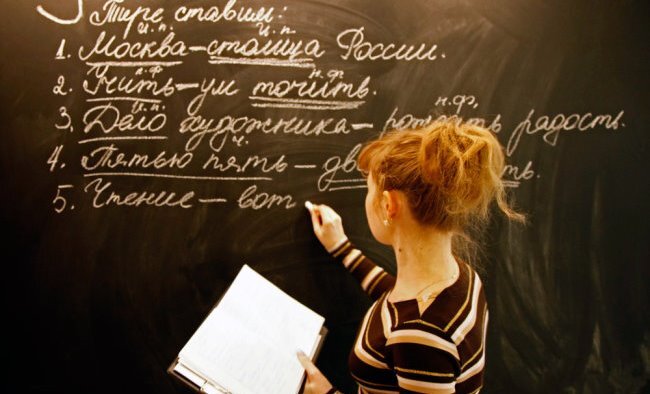 Тире ставим:
И.п. И.п.
1. Москва – столица России.
н.ф. н.ф.
2. Учить – ум точить.
И.п. н.ф.
3. Дело художника – рождать радость.
ч.
4. Пятью пять –
5. Чтение – вот